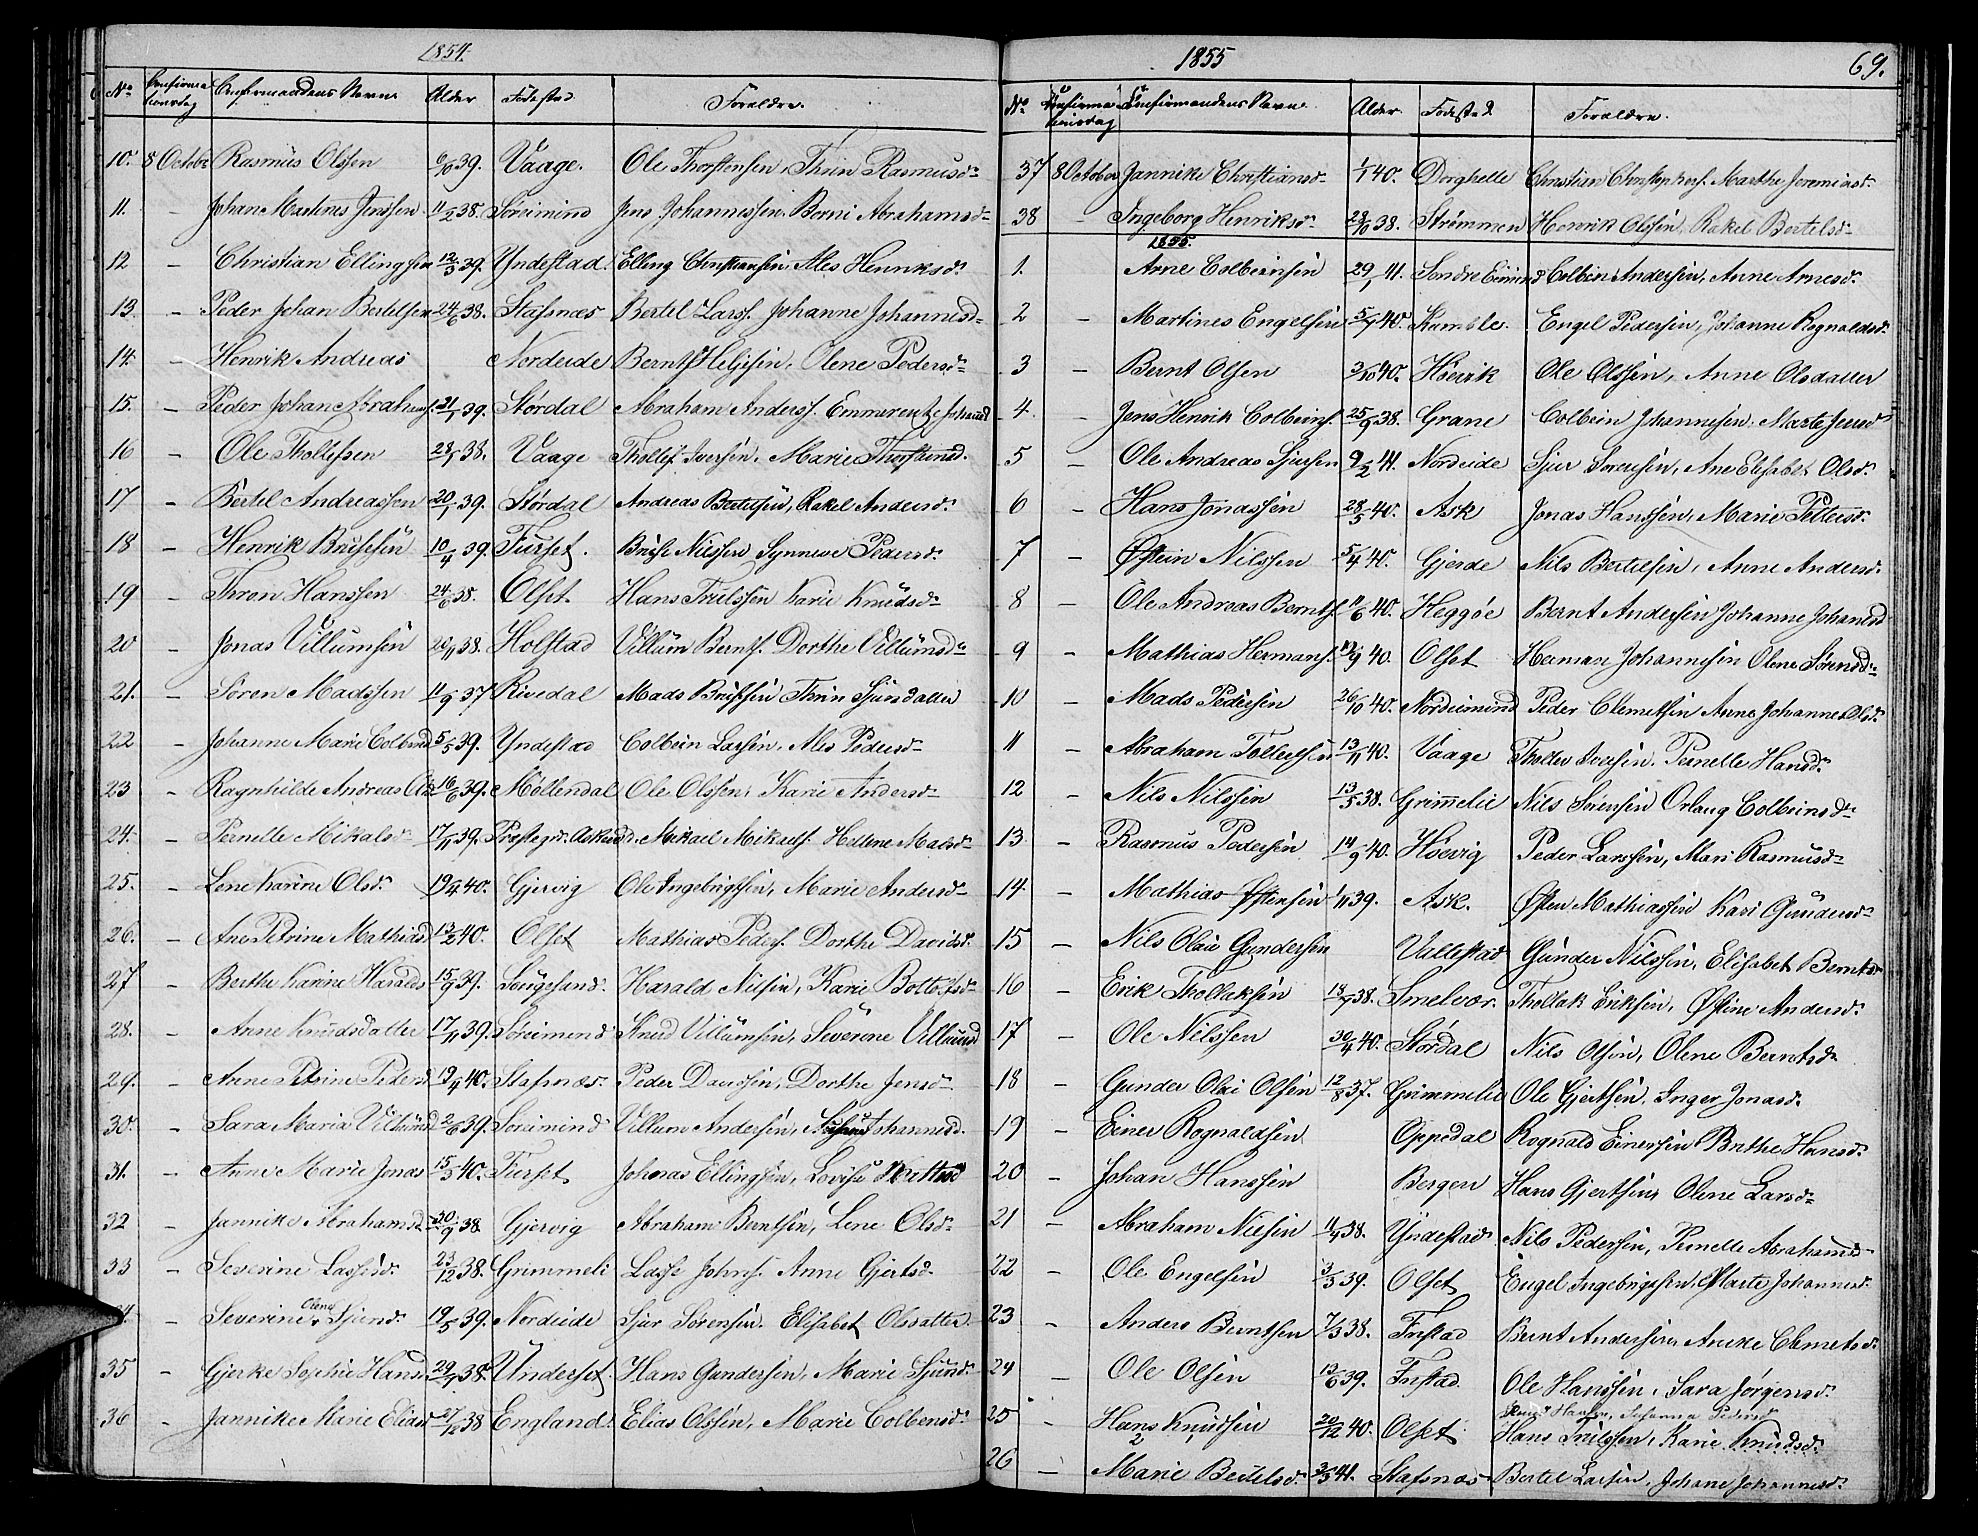 1854.
No Confirmationsdag Confirmandens Navn Alder Fødested Forældre.
10. 8 October Rasmus Olssen 6/9 39. Vaage. Ole Thorstensen, Thrin Rasmusd.
11. - Johan Martines Jenssen 11/2 38. Søreimind Jens Johannessen, Borni Abrahamsd.
12 - Christian Ellingsen 12/3 39. Yndestad. Elling Christiansen, Ales Henriksd.
13 - Peder Johan Bertelsen 24/6 38. Stafsnæs Bertel Larss. Johanne Johannesd.
14. - Henrik Andreas Nordeide Bernt Heljesen, Olene Pedersd.
15. - Peder Johan Abrahams. 21/1 39. Stórdal Abraham Anderss. Emmerentze Johansd
16 - Ole Thollefsen 28/1 38. Vaage Thollef Iversen, Marie Thorstensd.
17 - Bertel Andreassen 20/1 39. Stórdal Andreas Bertelsen, Rakel Andersd.
18 - Henrik Brusesen 10/4 39. Furset. Bruse Nilssen Synneve Pedersd.
19 - Thron Hanssen 24/6 38. Olset. Hans Trulssen Karie Knudsd.
20 - Jonas Villumsen 20/11 38. Holstad Villum Bernts. Dorthe Villumsd.
21. - Søren Madssen 11/9 37 Rivedal Mads Brusesen Thrin Sjursdatter
22 - Johanne Marie Colbeind 5/5 39. Yndestad Colbein Larsen, Ales Pedersd.
23 - Ragnhilde Andrea Ols 16/6 39. Møllendal Ole Olssen, Karie Andersd.
24. - Pernelle Mikalsd. 17/11 39. Præstegrd. Askevold. Mikael Mikaels. Hellene Matsd.
25. - Lene Karine Olsd. 19/2 40. Gjervig Ole Ingebrigtsen, Marie Andersd.
26. - Ane Petrine Mathiasd 13/2 40. Olset Mathias Peders. Dorthe Davidsd.
27 - Berthe Karine Haralds 15/9 39. Lougesand. Harald Nilsen, Karie Bottolfsd.
28. - Anne Knudsdatter 17/11 39. Søreimend Knud Villumsen, Severine Villumsd
29. - Anne Petrine Pedersd 19/4 40. Stafsnæs Peder Davissen, Dorthe Jensd.
30. - Sara Maria Villumsd 2/6 39. Søreimind Villum Andersen, Johannesd.
31. - Anne Marie Jonas 15/3 40. Furset Johonas Ellingsen, Lovise
32 - Jannike Abrahamsd. 30/9 38 Gjervig Abraham Berntsen, Lene Olsd.
33 - Severine Lassesd. 23/12 38. Grimmeli Lasse Johns. Anne Gjertsd.
34. - Severine Olene Sjursd. 19/5 39. Nordeide Sjur Sørensen. Elisabet Olsdatter
35 - Gjerke Sophie Hansd 29/1 38. Underset. Hans Gundersen, Marie Sjursd.
36 - Jannike Marie Eliasd 27/12 38 England. Elias Olssen, Marie Colbensd.
1855
69.
No Confirmationsdag Confirmandens Navn. Alder. Fødested Forældre.
37 8 October Jannike Christiansd. 1/1 40. Dorghelle Christian Christophers. Marthe Jeremiasd.
38 - Ingeborg Henriksd. 28/10 38. Strømmen Henrik Olssen, Rakel Bertelsd.
1855.
1. Arne Colbeinsen 29/1 41. Søndre Eimind Colbein Andersen, Anne Arnesd.
2 - Martines Engelsen 5/7 40. Stamble. Engel Pedersen, Johanne Rognaldsd.
3 - Bernt Olsen 3/10 40. Høevik Ole Olssen, Anne Olsdatter
4 - Jens Henrik Colbeins. 25/9 38. Grane Colbein Johannesen, Marte Jensd
5 - Ole Andreas Sjursen 9/2 41. Nordeide Sjur Sørensen, Ane Elisabet Olsd.
6 - Hans Jonassen 28/5 40. Ask Jonas Hanssen, Marie Pettersd.
7 - Østein Nilssen 5/4 40. Gjerde Nils Bertelsen, Anne Andersd.
8 - Ole Andreas Bernts. 11/6 40. Heggöe Bernt Andersen Johanne Johansd
9 - Mathias Hermans. 17/9 40. Olset Herman Johannesen Olene Sørensd.
10 - Mads Pedersen 26/10 40. Nordeimind Peder Clemetsen Anne Johanne Olsd.
11 - Abraham Tollevsen 13/11 40. Vaage Thollev Iversen. Pernelle Hansd.
12 - Nils Nilssen 13/5 38. Grimmelie Nils Sørensen Orlaug Colbeinsd.
13 - Rasmus Pedersen 14/9 40. Høevig Peder Larssen, Mari Rasmusd.
14. - Mathias Østensen 1/11 39. Ask. Østen Mathiassen Kari Gundersd.
15 - Nils Olai Gundersen Vallestad Gunder Nilssen, Elisabet Berntsd.
16 - Erik Thollaksen 18/7 38. Smelvær. Thollak Eriksen, Østine Andersd.
17 - Ole Nilssen 30/4 40. Stórdal Nils Olsen, Olene Berntsd.
18 - Gunder Olai Olsen 12/8 37. Grimmelie Ole Gjertsen, Inger Jonasd.
19 - Einer Rognaldsen Oppedal Rognald Einersen Brithe Hansd.
20 - Johan Hanssen Bergen Hans Gjertsen, Olene Larsd.
21 - Abraham Nilsen 11/4 38. Yndestad Nils Pedersen, Pernelle Abrahamsd.
22 - Ole Engelsen 3/5 39. Olset Engel Ingebrigtsen, Marte Johannesd.
23 - Anders Berntsen 7/3 38. Instad Bernt Andersen, Anike Clemetsd.
24 - Ole Olsen 13/6 39. Instad. Ole Hanssen, Sara Jørgensd.
25 - Hans Knudsen 20/12 40. Olset Knud Hansen, Johanna Pedersd.
Hans Trulssen, Karie Knudsd.
26 - Marie Bertelsd. 3/3 41. Stafsnæs Bertel Larsen, Johane Johannesd.